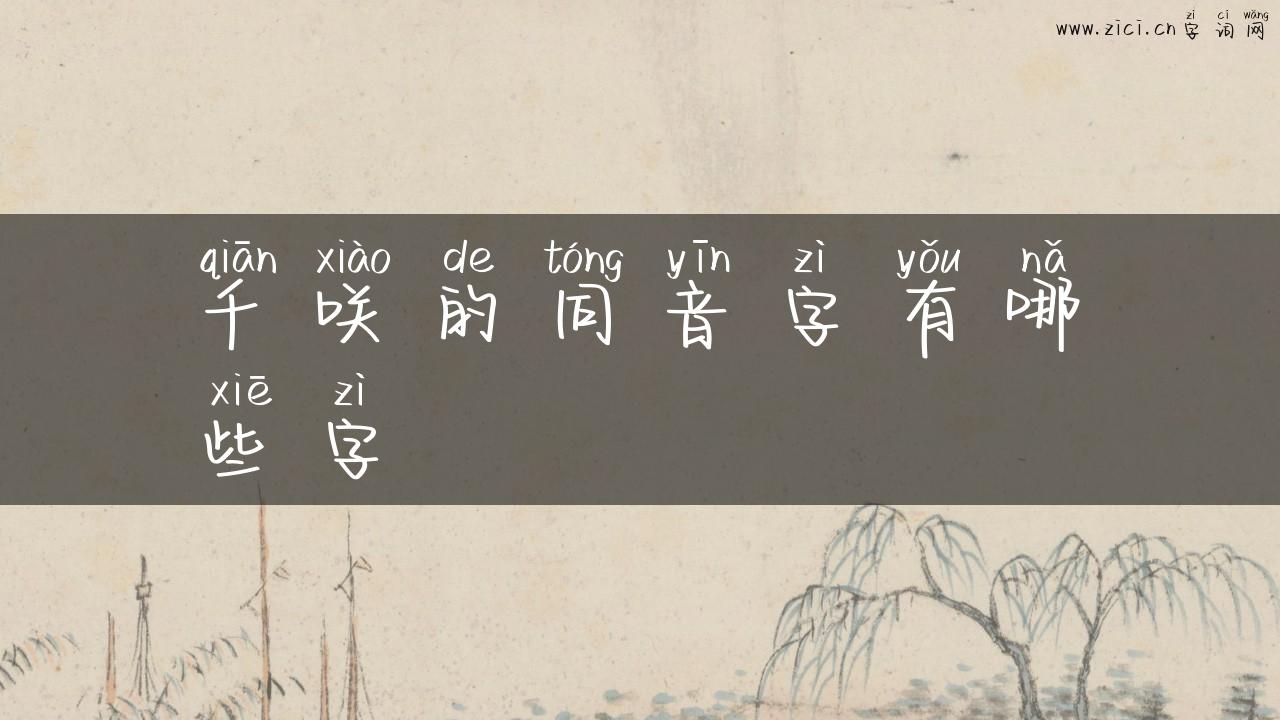 zì cí wǎng
www.zici.cn字词网
qiān xiào de tóng yīn zì yǒu nǎ
千咲的同音字有哪
xiē zì
些字